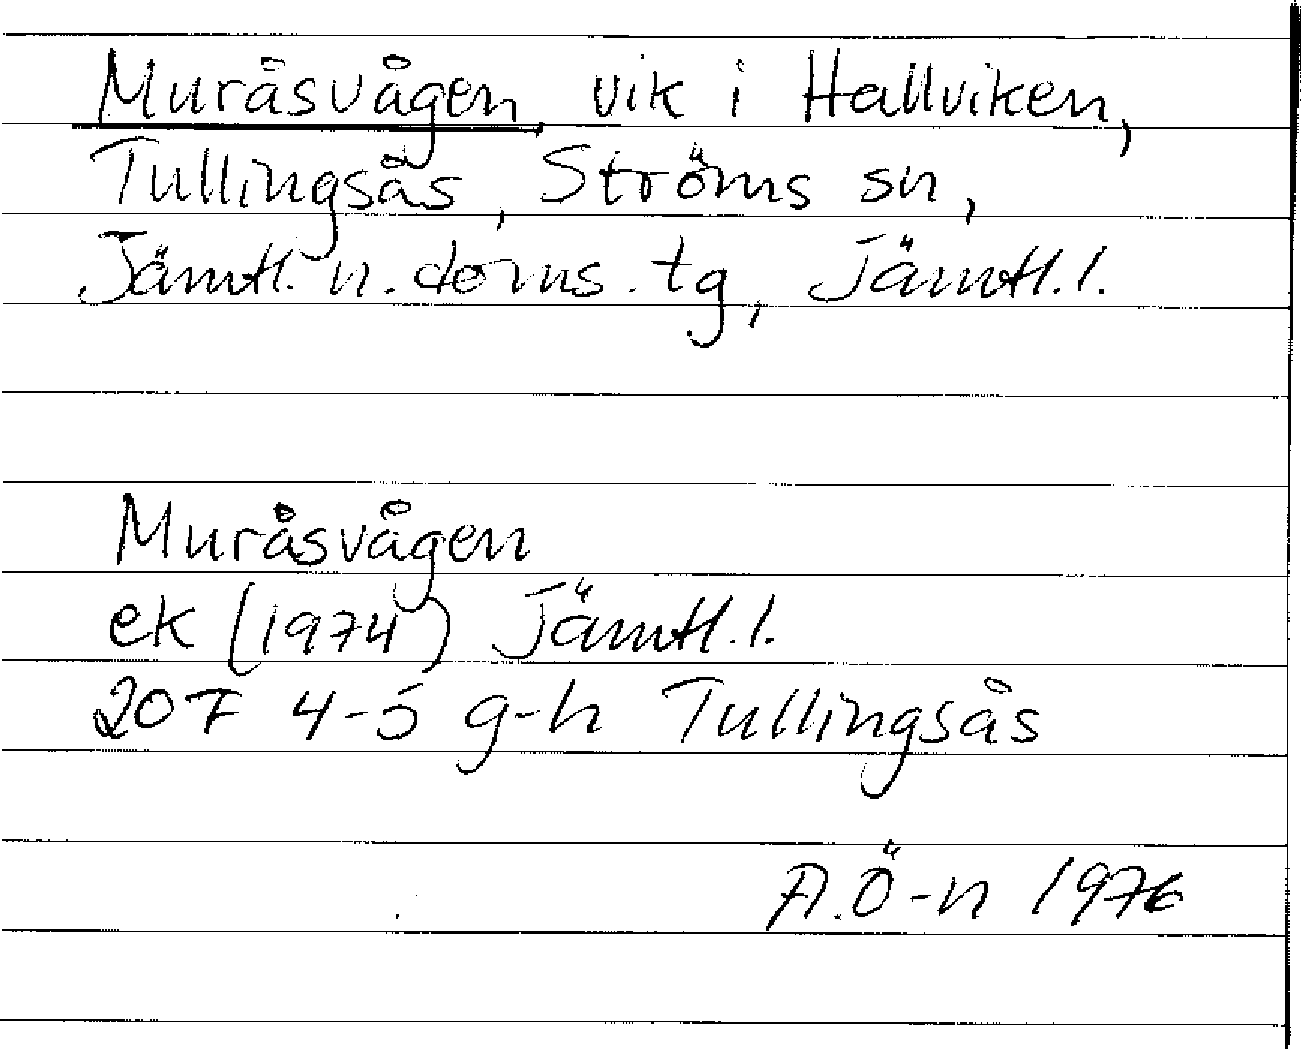 Muråsvågen, vik i Hallviken,
Tullingsås, Ströms sn,
Jämtl. n. doms. tg, Jämtl. l.
Muråsvågen
ek (1974) Jämtl. l.
20F 4-5 g-h Tullingsås
A.Ö-n 1976